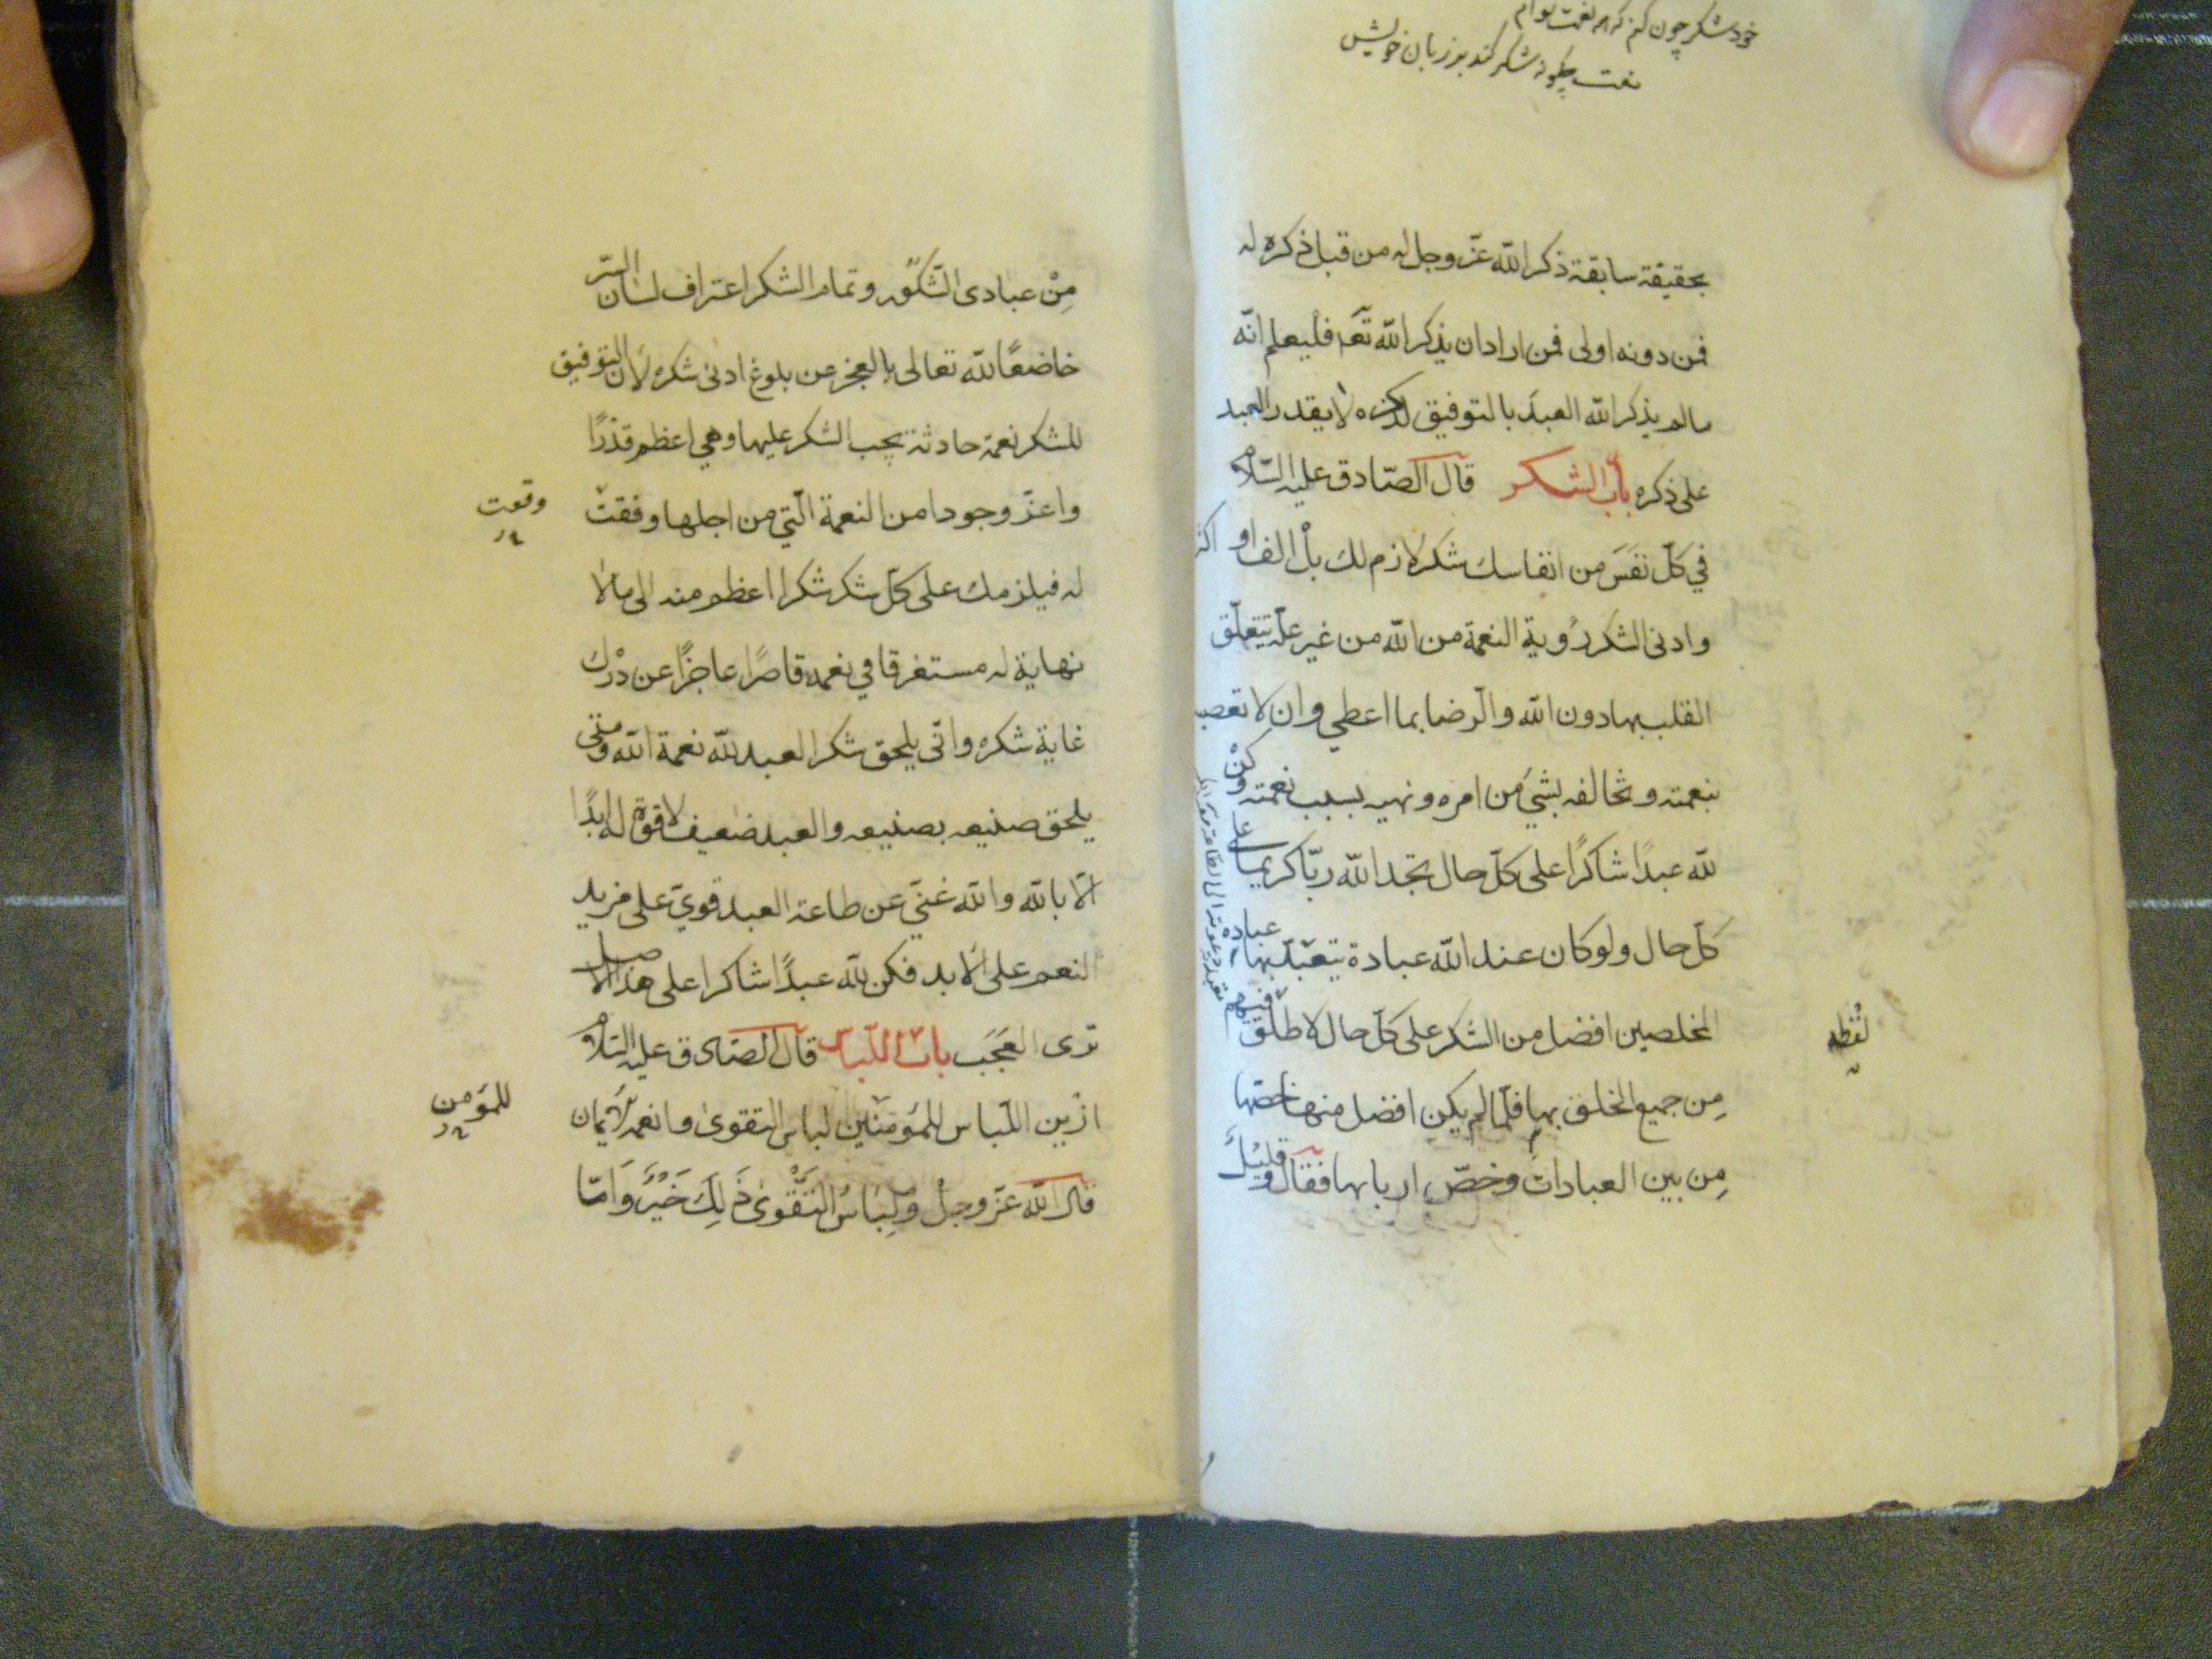 خود شکر چون کنم که همه نعمت توام
نعمت چگونه شکر کند بر زبان خویش
بحقیقة سابقة ذکر الله عزّ وجل له من قبل ذکره له
فمن دونه اولی فمن اراد ان یذکر الله تعم فلیعلم انّه
ما لم یذکر الله العبدَ بالتوفیق لذکره لا یقدر العبد
علی ذکره باب الشکر قال الصّادق علیه السّلام
في کلّ نَفَسَ من انفاسك شکر لازم لك بل الف او اکثر
وادنی الشکر رُؤیة النعمة من الله من غیر علّة یتعلّق
القلب بها دون الله والرضا بما اعطي وان لا تعصیه
بنعمته وتخالفه بشيء من امره ونهیه بسبب نعمته وکن
لله عبدًا شاکرًا علی کلّ حال تجد الله ربّا کریما علی
کلّ حال ولو کان عند الله عبادة یتعبّد بها عباده
المخلصین افضل من الشکر علی کلّ حال لاطلق
لفظه
مِن جمیع الخلق بها فلمّا لم یکن افضل منها خصّها
مِن بین العبادات وخصّ اربابها فقال وقلیلٌ
مِنْ عبادی الشّکور وتمام الشکر اعتراف لسان السّر
خاضعًا لله تعالی بالعجز عن بلوغ ادنی شکره لأن التوفیق
للشکر نعمة حادثة یجب الشکر علیها وهي اعظم قدْرًا
واعزّ وجودا من النعمة الّتي من اجلها وفقتَ
وقعت
له فیلزمك علی کلّ شکر شکرا اعظم منه الی ما لا
نهایة له مستغرقا في نعمه قاصرًا عاجزًا عن درْك
غایة شکره وانّی یلحق شکر العبد لله نعمة الله ومتی
یلحق صنیعه بصنیعه والعبد ضعیف لا قوة له ابدًا
الّا بالله والله غنيّ عن طاعة العبد قويّ علی مزید
النعم علی الابد فکن لله عبدًا شاکرا علی هذا الاصل
تری العَجَبَ باب اللّباس قال الصّادق علیه السّلام
ازْین اللّباس للمؤمنین لباس التقوی وانعمه الایمان
للمؤمن
قال الله عزّ وجلّ وَلِبَاسُ التَّقْوَی ذَلِكَ خَیْرٌ وَامّا